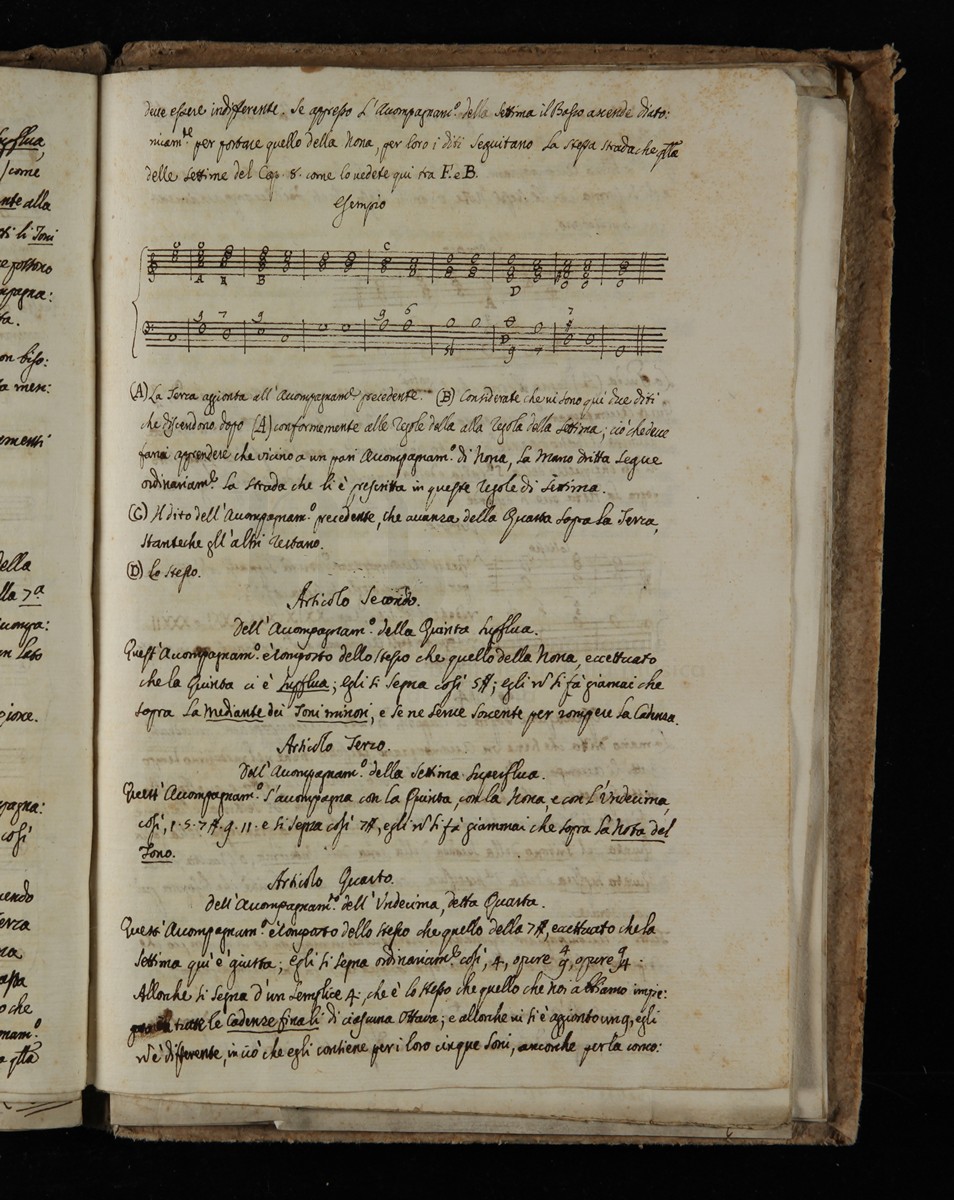 Supflua,
come
nte alla
ti li Toni
mpagna:
ta.
on biso:
a mere:
ementi
della
lla 7ª
compa:
n lato
gione.
pagna:
così
uendo
erza
o che
nam.º
a qlla
deve essere indifferente. Se appresso l'Acompagnam.º della Settima il Basso ascende diato:
niam.te per portare quello della Nona, per loro i diti seguitano la stessa strada che qlla
delle settime del Cap. 8. come lo vedete qui tra F. e B.
Esempio
C
A B
D
9 7 9 9 6 7
5b D 9 7
(A) La Terza aggionta all'Acompagnam.º precedente. (B) Considerate che vi sono qui due diti
che discendono dopo (A) conformemente alle regole della alla regola della settima; ciò che deve
farvi apprendere che vicino a un pari Acompagnam.º di Nona, la Mano dritta segue
ordinariam.te la strada che li è prescritta in queste regole di settima.
(C) Il dito dell'Acompagnam.º precedente, che avanza della Quarta sopra la Terza,
stanteche gl'altri restano.
(D) lo stesso.
Articolo Secondo.
Dell'Acompagnam.º della Quinta Supflua.
Quest'Acompagnam.º è composto dello stesso che quello della Nona, eccettuato
che la Quinta ci è Supflua; egli si segna così 5#; egli nō si fà giamai che
sopra la Mediante dei Toni minori, e se ne serve sovente per rompere la Cadenza.
Articolo Terzo.
Dell'Acompagnam.º della Settima Superflua.
Quest'Acompagnam.º s'accompagna con la Quinta, con la Nona, e con l'Undecima,
così, 1. 5. 7#. 9. 11. e si segna così 7#, egli nō si fà giammai che sopra la Nota del
Tono.
Articolo Quarto.
dell'Acompagnam.to dell'Undecima, detta Quarta.
Quest'Acompagnam.º è composto dello stesso che quello della 7#, eccettuato che la
settima qui è giusta; egli si segna ordinariam.te così, 4, opure 4/9, opure 9/4.
Allorche si segna d'un semplice 4, che è lo stesso che quello che noi abbiamo impie:
tutte le Cadenze finali di ciascuna Ottava; e allorche vi si è aggionto un 9, egli
nō è differente, in ciò che egli contiene per i loro cinque suoni, ancorche per la conco: